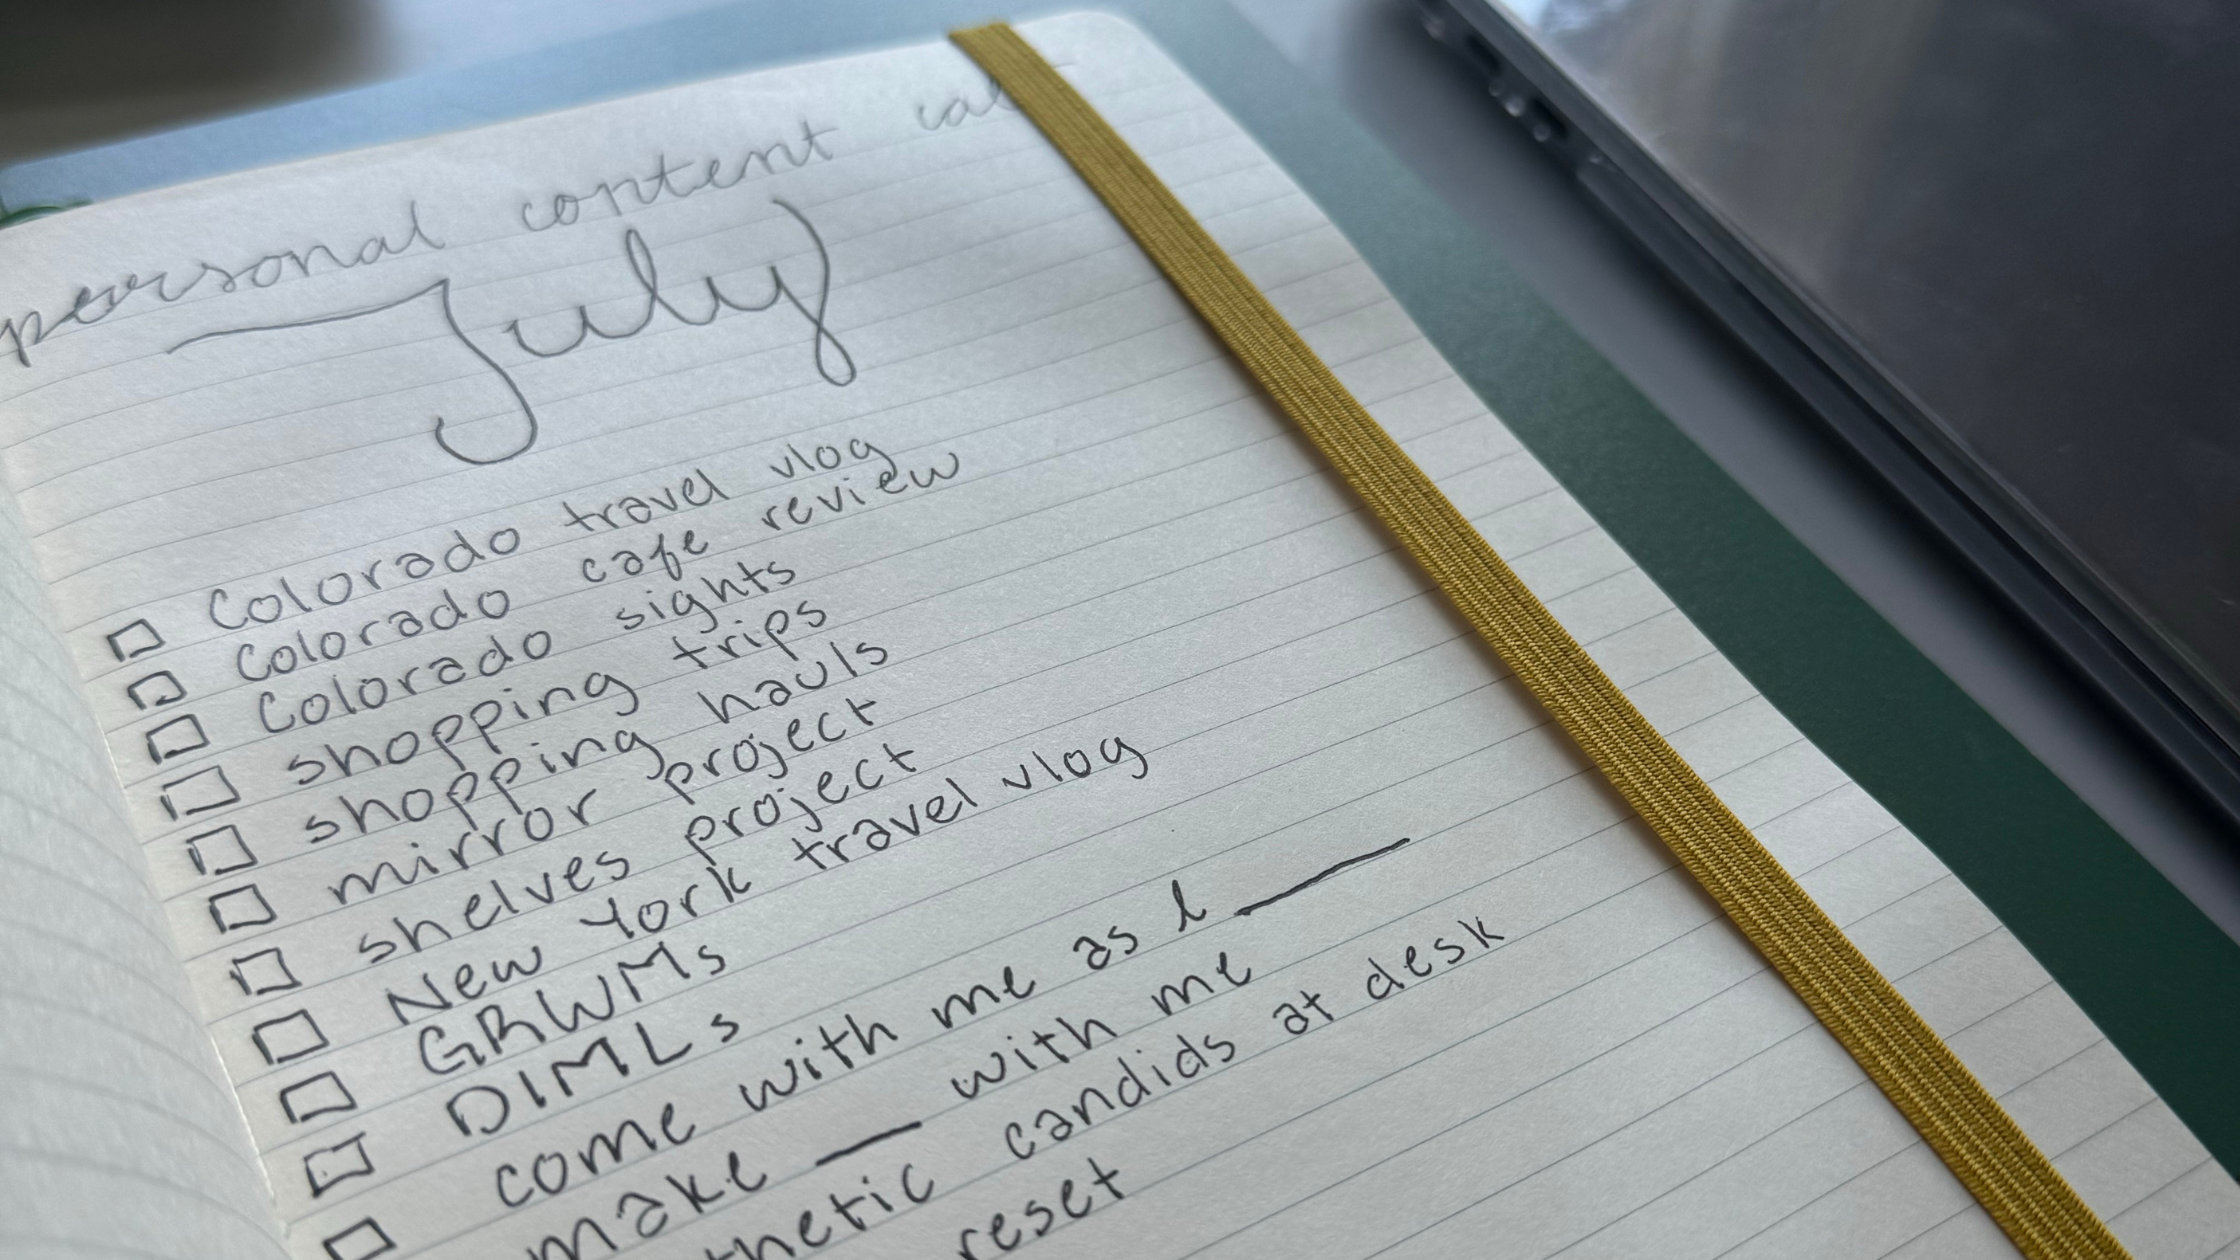 personal content cal
July
Colorado travel vlog
Colorado cafe review
Colorado sights
shopping trips
shopping hauls
mirror project
shelves project
New York travel vlog
GRWMs
DIMLs
come with me as I ____
make ____ with me
candids at desk
reset